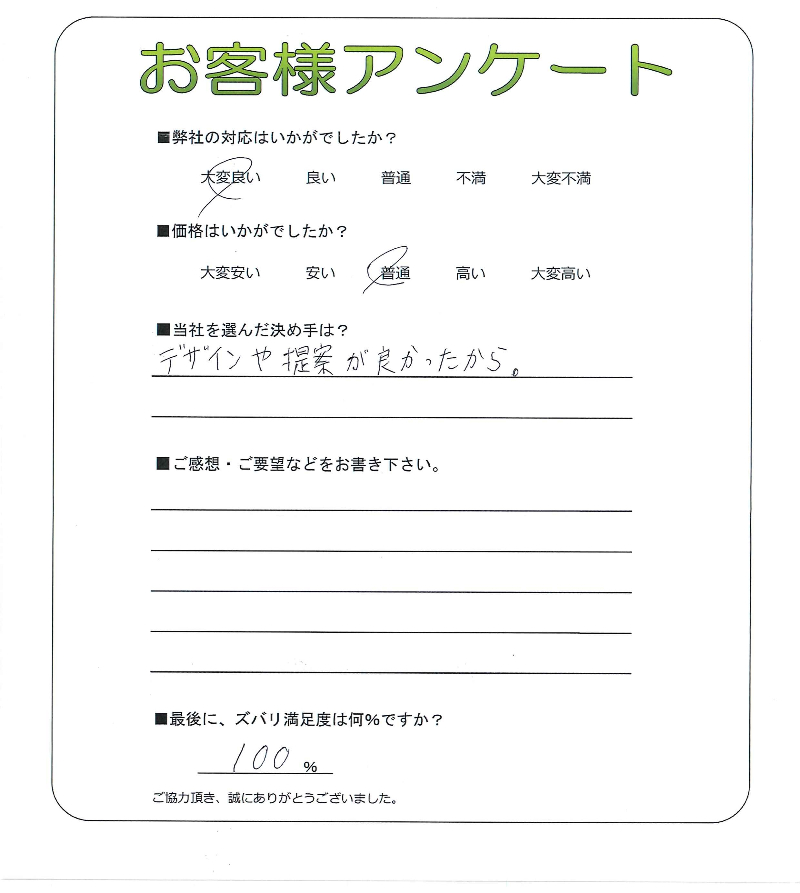 お客様アンケート
■弊社の対応はいかがでしたか？
大変良い 良い 普通 不満 大変不満
■価格はいかがでしたか？
大変安い 安い 普通 高い 大変高い
■当社を選んだ決め手は？
デザインや提案が良かったから。
■ご感想・ご要望などをお書き下さい。
■最後に、ズバリ満足度は何%ですか？
100 %
ご協力頂き、誠にありがとうございました。